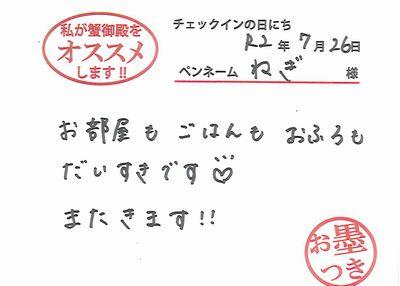 私が蟹御殿を
オススメ
します!!
チェックインの日にち
R2年7月26日
ペンネーム ねぎ 様
お部屋も ごはんも おふろも
だいすきです♡
またきます!!
お墨
つき